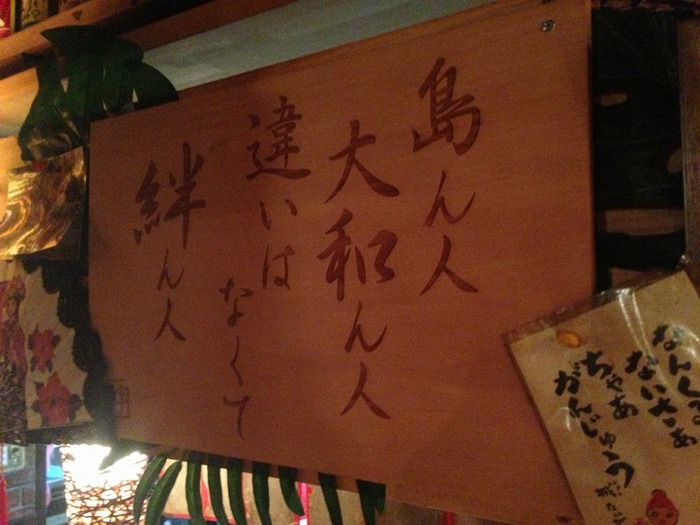 島ん人
大和ん人
違いは
なくて
絆ん人
なんくる
ないさぁ
ちゃあ
がんじゅう